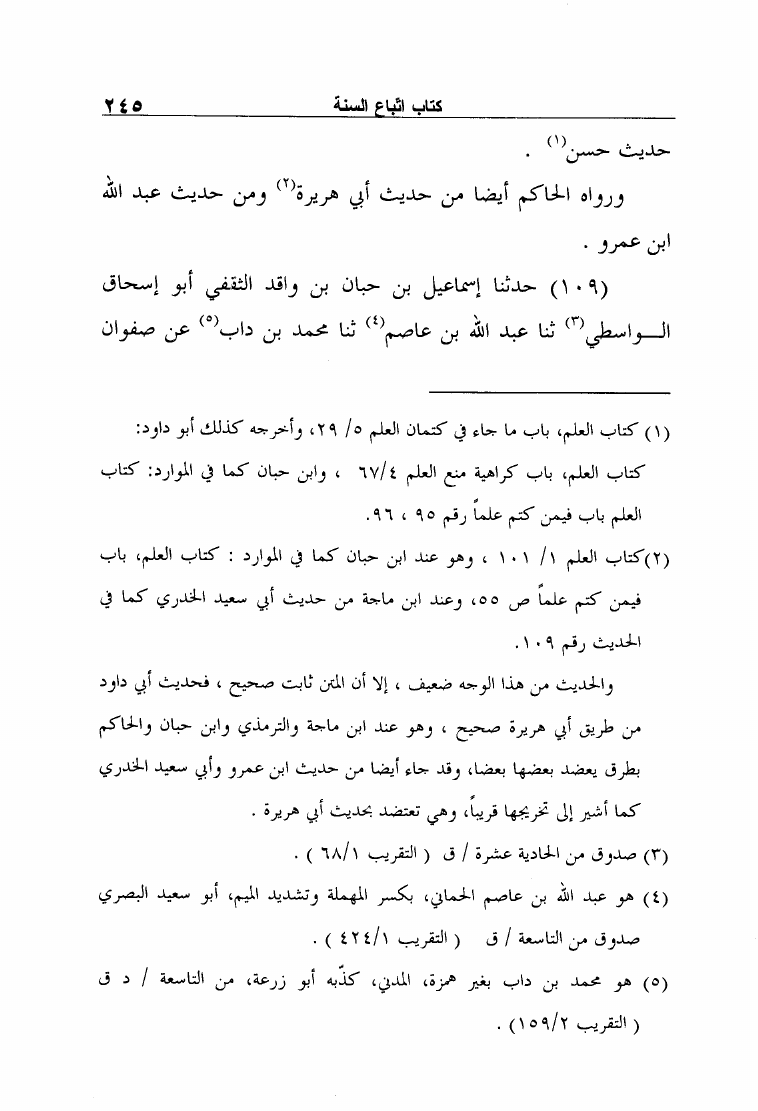 كتاب اتّباع السنة ٢٤٥
حديث حسن(١) .
ورواه الحاكم أيضا من حديث أبي هريرة(٢) ومن حديث عبد الله
ابن عمرو .
(١٠٩) حدثنا إسماعيل بن حبان بن واقد الثقفي أبو إسحاق
الـــواسطي(٣) ثنا عبد الله بن عاصم(٤) ثنا محمد بن داب(٥) عن صفوان
(١) كتاب العلم، باب ما جاء في كتمان العلم ٥/ ٢٩، وأخرجه كذلك أبو داود:
كتاب العلم، باب كراهية منع العلم ٦٧/٤ ، وابن حبان كما في الموارد: كتاب
العلم باب فيمن كتم علماً رقم ٩٥ ، ٩٦.
(٢)كتاب العلم ١/ ١٠١ ، وهو عند ابن حبان كما في الموارد : كتاب العلم، باب
فيمن كتم علماً ص ٥٥، وعند ابن ماجة من حديث أبي سعيد الخدري كما في
الحديث رقم ١٠٩.
والحديث من هذا الوجه ضعيف ، إلا أن المتن ثابت صحيح ، فحديث أبي داود
من طريق أبي هريرة صحيح ، وهو عند ابن ماجة والترمذي وابن حبان والحاكم
بطرق يعضد بعضها بعضا، وقد جاء أيضا من حديث ابن عمرو وأبي سعيد الخدري
كما أشير إلى تخريجها قريباً، وهي تعتضد بحديث أبي هريرة .
(٣) صدوق من الحادية عشرة / ق ( التقريب ٦٨/١ ) .
(٤) هو عبد الله بن عاصم الحماني، بكسر المهملة وتشديد الميم، أبو سعيد البصري
صدوق من التاسعة / ق ( التقريب ٤٢٤/١ ) .
(٥) هو محمد بن داب بغير همزة، المدني، كذّبه أبو زرعة، من التاسعة / د ق
( التقريب ١٥٩/٢) .